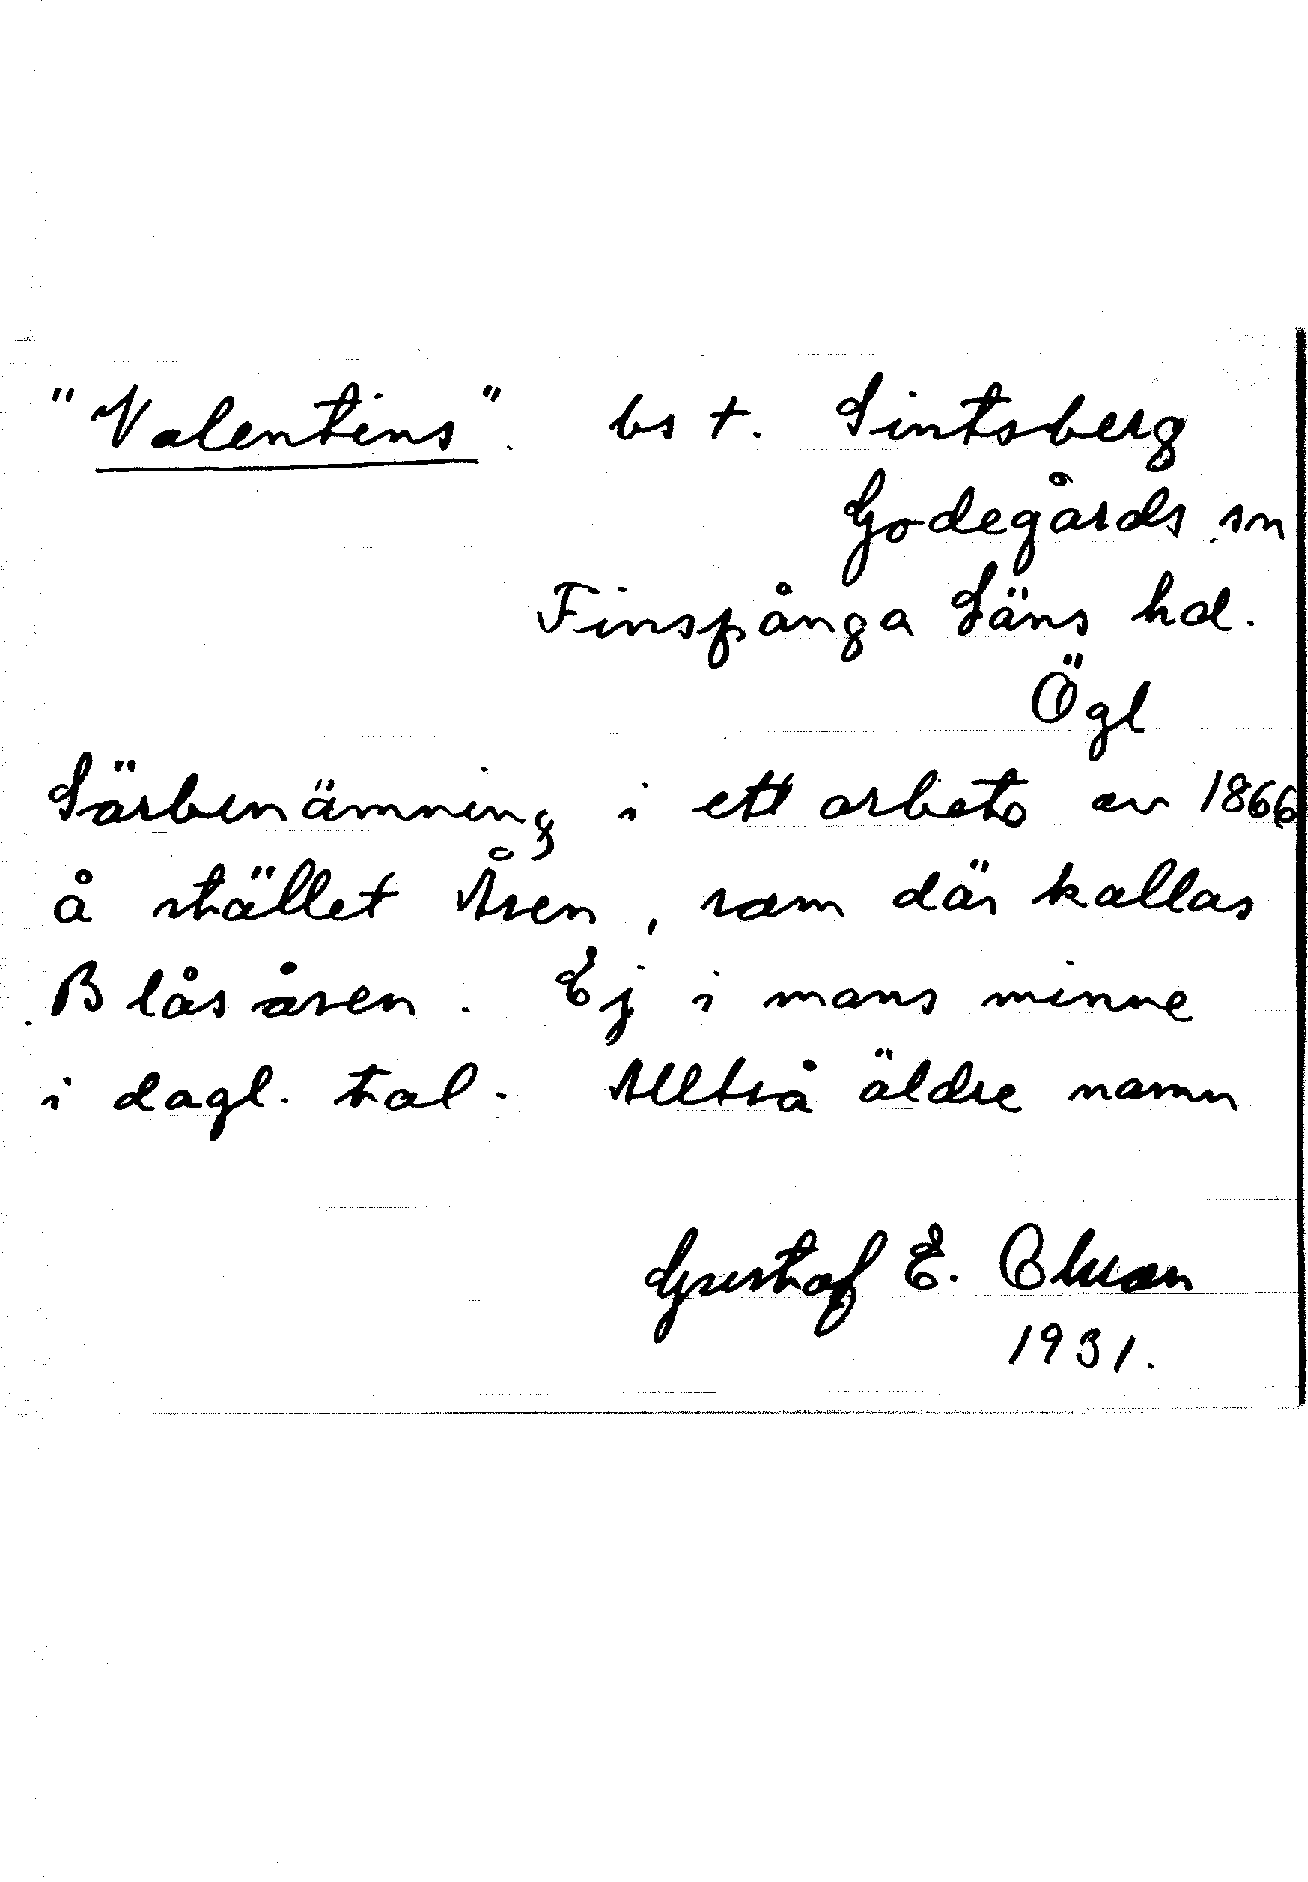 "Valentins". bs t. Sintsberg
Godegårds sn
Finspånga Läns hd.
Ögl
Särbenämning i ett arbets av 1866
å stället Åsen, som där kallas
Blåsåsen. Ej i mans minne
i dagl. tal. Alltså äldre namn
Gustaf E. Olsson
1931.